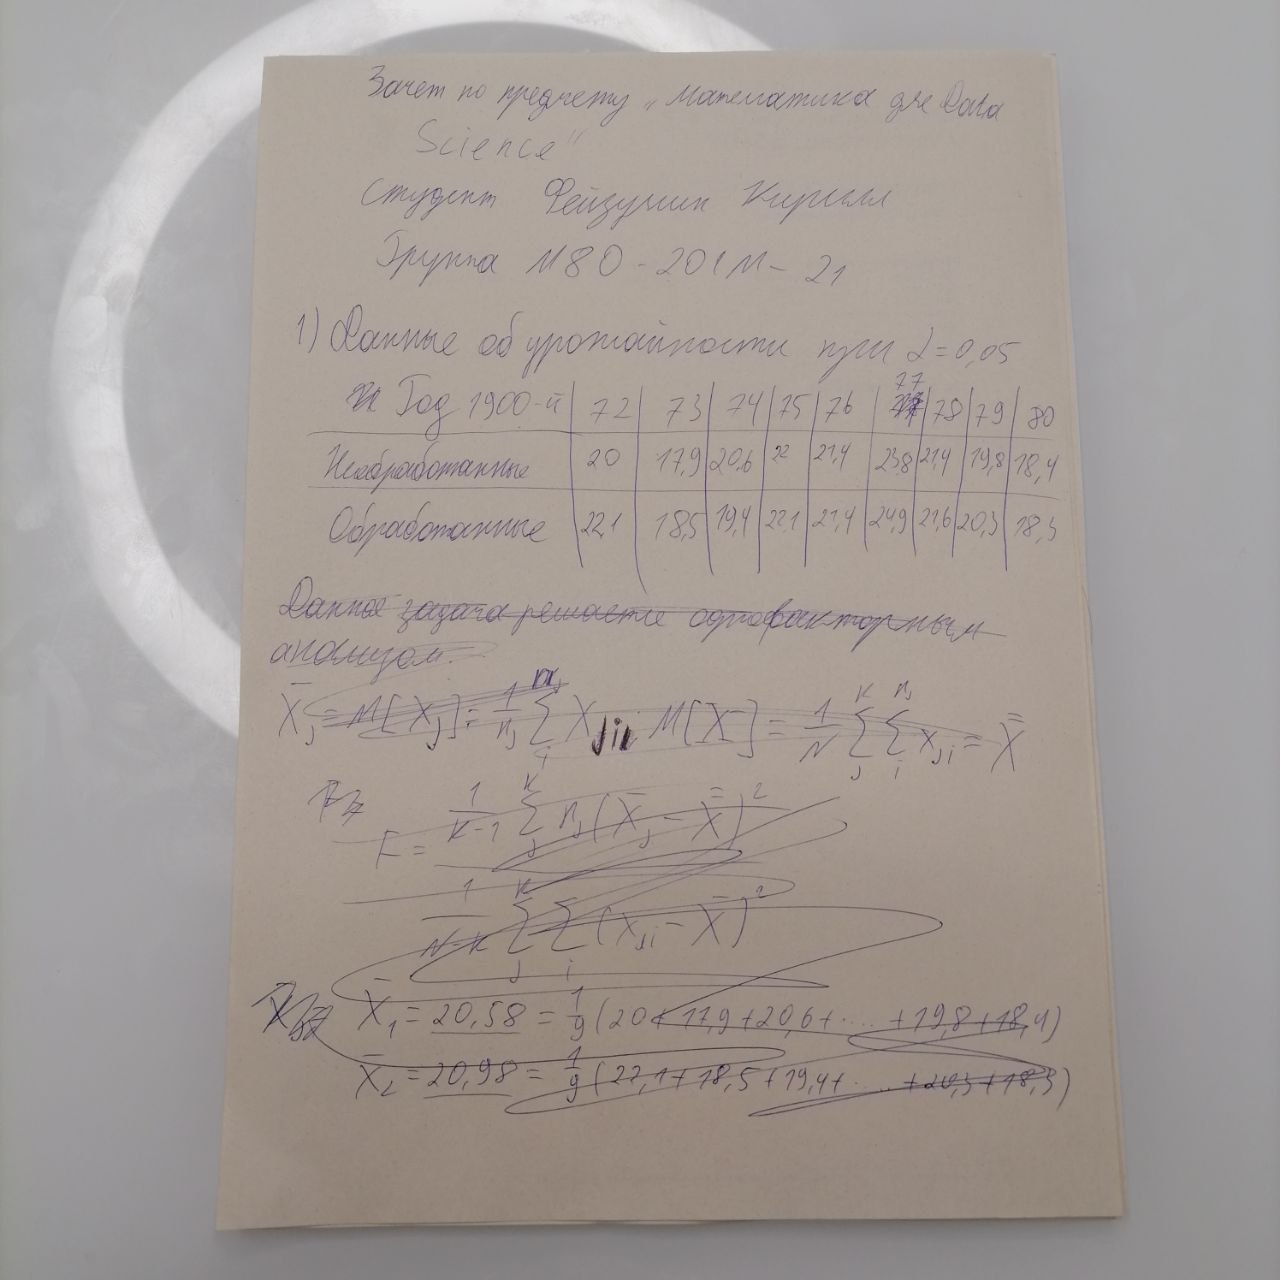 Зачет по предмету „Математика для Data
Science"
Студент Фейзуллин Кирилл
Группа М80-201М-21
1) Данные об урожайности при α=0,05
Год 1900-й 72 73 74 75 76 77 78 79 80
Необработанные 20 17,9 20,6 22 21,4 23,8 21,4 19,8 18,4
Обработанные 22,1 18,5 19,4 22,1 21,4 24,9 21,6 20,3 18,3
Данная задача решается однофакторным
анализом.
X̄j = M[Xj] = 1/nj Σ Xji M[X] = 1/N Σ Σ xji = X̿
F = 1/(K-1) Σ nj (X̄j - X̿)²
1/(N-K) Σ Σ (xji - X̄)²
X̄1 = 20,58 = 1/9 (20+17,9+20,6+....+19,8+18,4)
X̄2 = 20,98 = 1/9 (22,1+18,5+19,4+....+20,3+18,3)